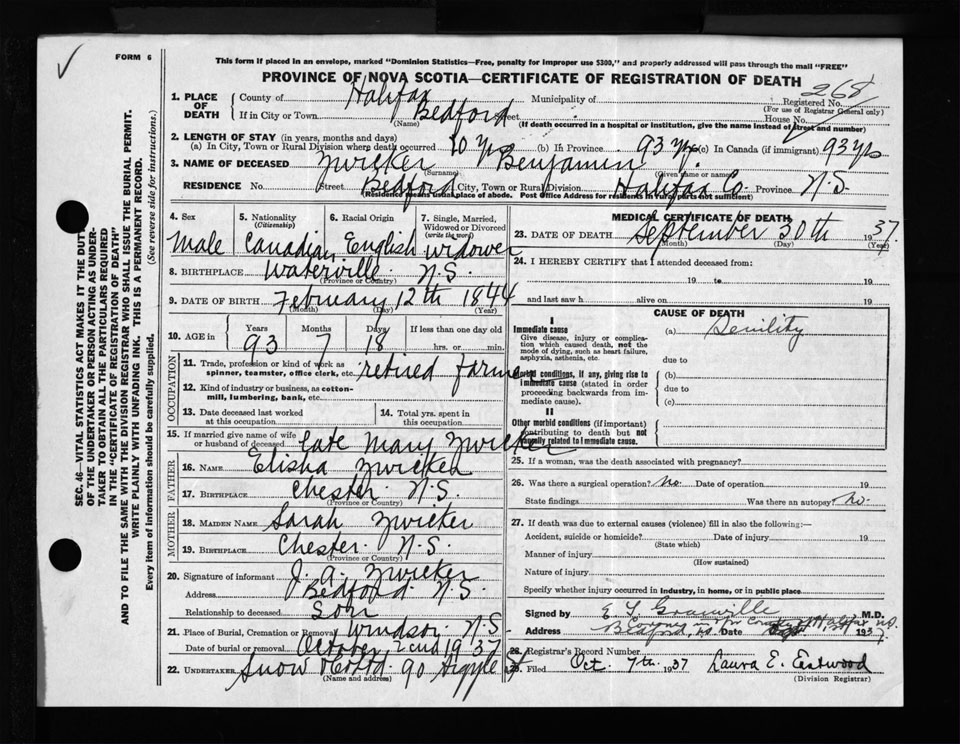 ✓
FORM 6
This form if placed in an envelope, marked "Dominion Statistics—Free, penalty for improper use $300," and properly addressed will pass through the mail "FREE"
PROVINCE OF NOVA SCOTIA—CERTIFICATE OF REGISTRATION OF DEATH
SEC. 46—VITAL STATISTICS ACT MAKES IT THE DUTY
OF THE UNDERTAKER OR PERSON ACTING AS UNDER-
TAKER TO OBTAIN ALL THE PARTICULARS REQUIRED
IN THE "CERTIFICATE OF REGISTRATION OF DEATH"
AND TO FILE THE SAME WITH THE DIVISION REGISTRAR WHO SHALL ISSUE THE BURIAL PERMIT.
WRITE PLAINLY WITH UNFADING INK. THIS IS A PERMANENT RECORD.
Every item of information should be carefully supplied. (See reverse side for instructions.)
1. PLACE OF DEATH County of Halifax Municipality of Registered No. 268
(For use of Registrar General only)
If in City or Town Bedford Street House No.
(Name) (If death occurred in a hospital or institution, give the name instead of street and number)
2. LENGTH OF STAY (in years, months and days)
(a) In City, Town or Rural Division where death occurred 10 yrs (b) In Province 93 yrs (c) In Canada (if immigrant) 93 yrs
3. NAME OF DECEASED Zwicker Benjamin
(Surname) (Given name or names)
RESIDENCE No. Street Bedford City, Town or Rural Division Halifax Co. Province N.S.
(Residence means usual place of abode. Post Office Address for residents in rural parts not sufficient)
4. Sex Male
5. Nationality (Citizenship) Canadian
6. Racial Origin English
7. Single, Married, Widowed or Divorced (write the word) widower
8. BIRTHPLACE Waterville N.S.
(Province or Country)
9. DATE OF BIRTH February 12th 1844
(Month) (Day) (Year)
10. AGE in Years 93 Months 7 Days 18 If less than one day old hrs. or min.
OCCUPATION
11. Trade, profession or kind of work as spinner, teamster, office clerk, etc. retired farmer
12. Kind of industry or business, as cotton-mill, lumbering, bank, etc.
13. Date deceased last worked at this occupation
14. Total yrs. spent in this occupation
15. If married give name of wife or husband of deceased Late Mary Zwicker
FATHER
16. NAME Elisha Zwicker
17. BIRTHPLACE Chester N.S.
(Province or Country)
MOTHER
18. MAIDEN NAME Sarah Zwicker
19. BIRTHPLACE Chester N.S.
(Province or Country)
20. Signature of informant J. A. Zwicker
Address Bedford N.S.
Relationship to deceased Son
21. Place of Burial, Cremation or Removal Windsor N.S.
Date of burial or removal October 2cnd 1937
22. UNDERTAKER Snow 90 Argyle St
(Name and address)
MEDICAL CERTIFICATE OF DEATH
23. DATE OF DEATH September 30th 1937
(Month) (Day) (Year)
24. I HEREBY CERTIFY that I attended deceased from:
19 to 19
and last saw h alive on 19
CAUSE OF DEATH
I
Immediate cause
Give disease, injury or complication which caused death, not the mode of dying, such as heart failure, asphyxia, asthenia, etc.
(a) Senility
due to
Morbid conditions, if any, giving rise to immediate cause (stated in order proceeding backwards from immediate cause).
(b)
due to
(c)
II
Other morbid conditions (if important) contributing to death but not causally related to immediate cause.
25. If a woman, was the death associated with pregnancy?
26. Was there a surgical operation? No. Date of operation 19
State findings Was there an autopsy? No.
27. If death was due to external causes (violence) fill in also the following:—
Accident, suicide or homicide? Date of injury 19
(State which)
Manner of injury
(How sustained)
Nature of injury
Specify whether injury occurred in industry, in home, or in public place
Signed by E L Granville M.D.
Address Bedford, N.S. Date Sept 1937
28. Registrar's Record Number
29. Filed Oct. 7th 1937 Laura E. Eastwood
(Division Registrar)